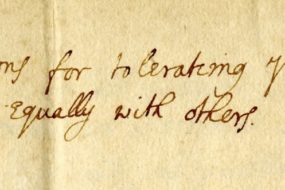 ons for tolerating
Equally with others.